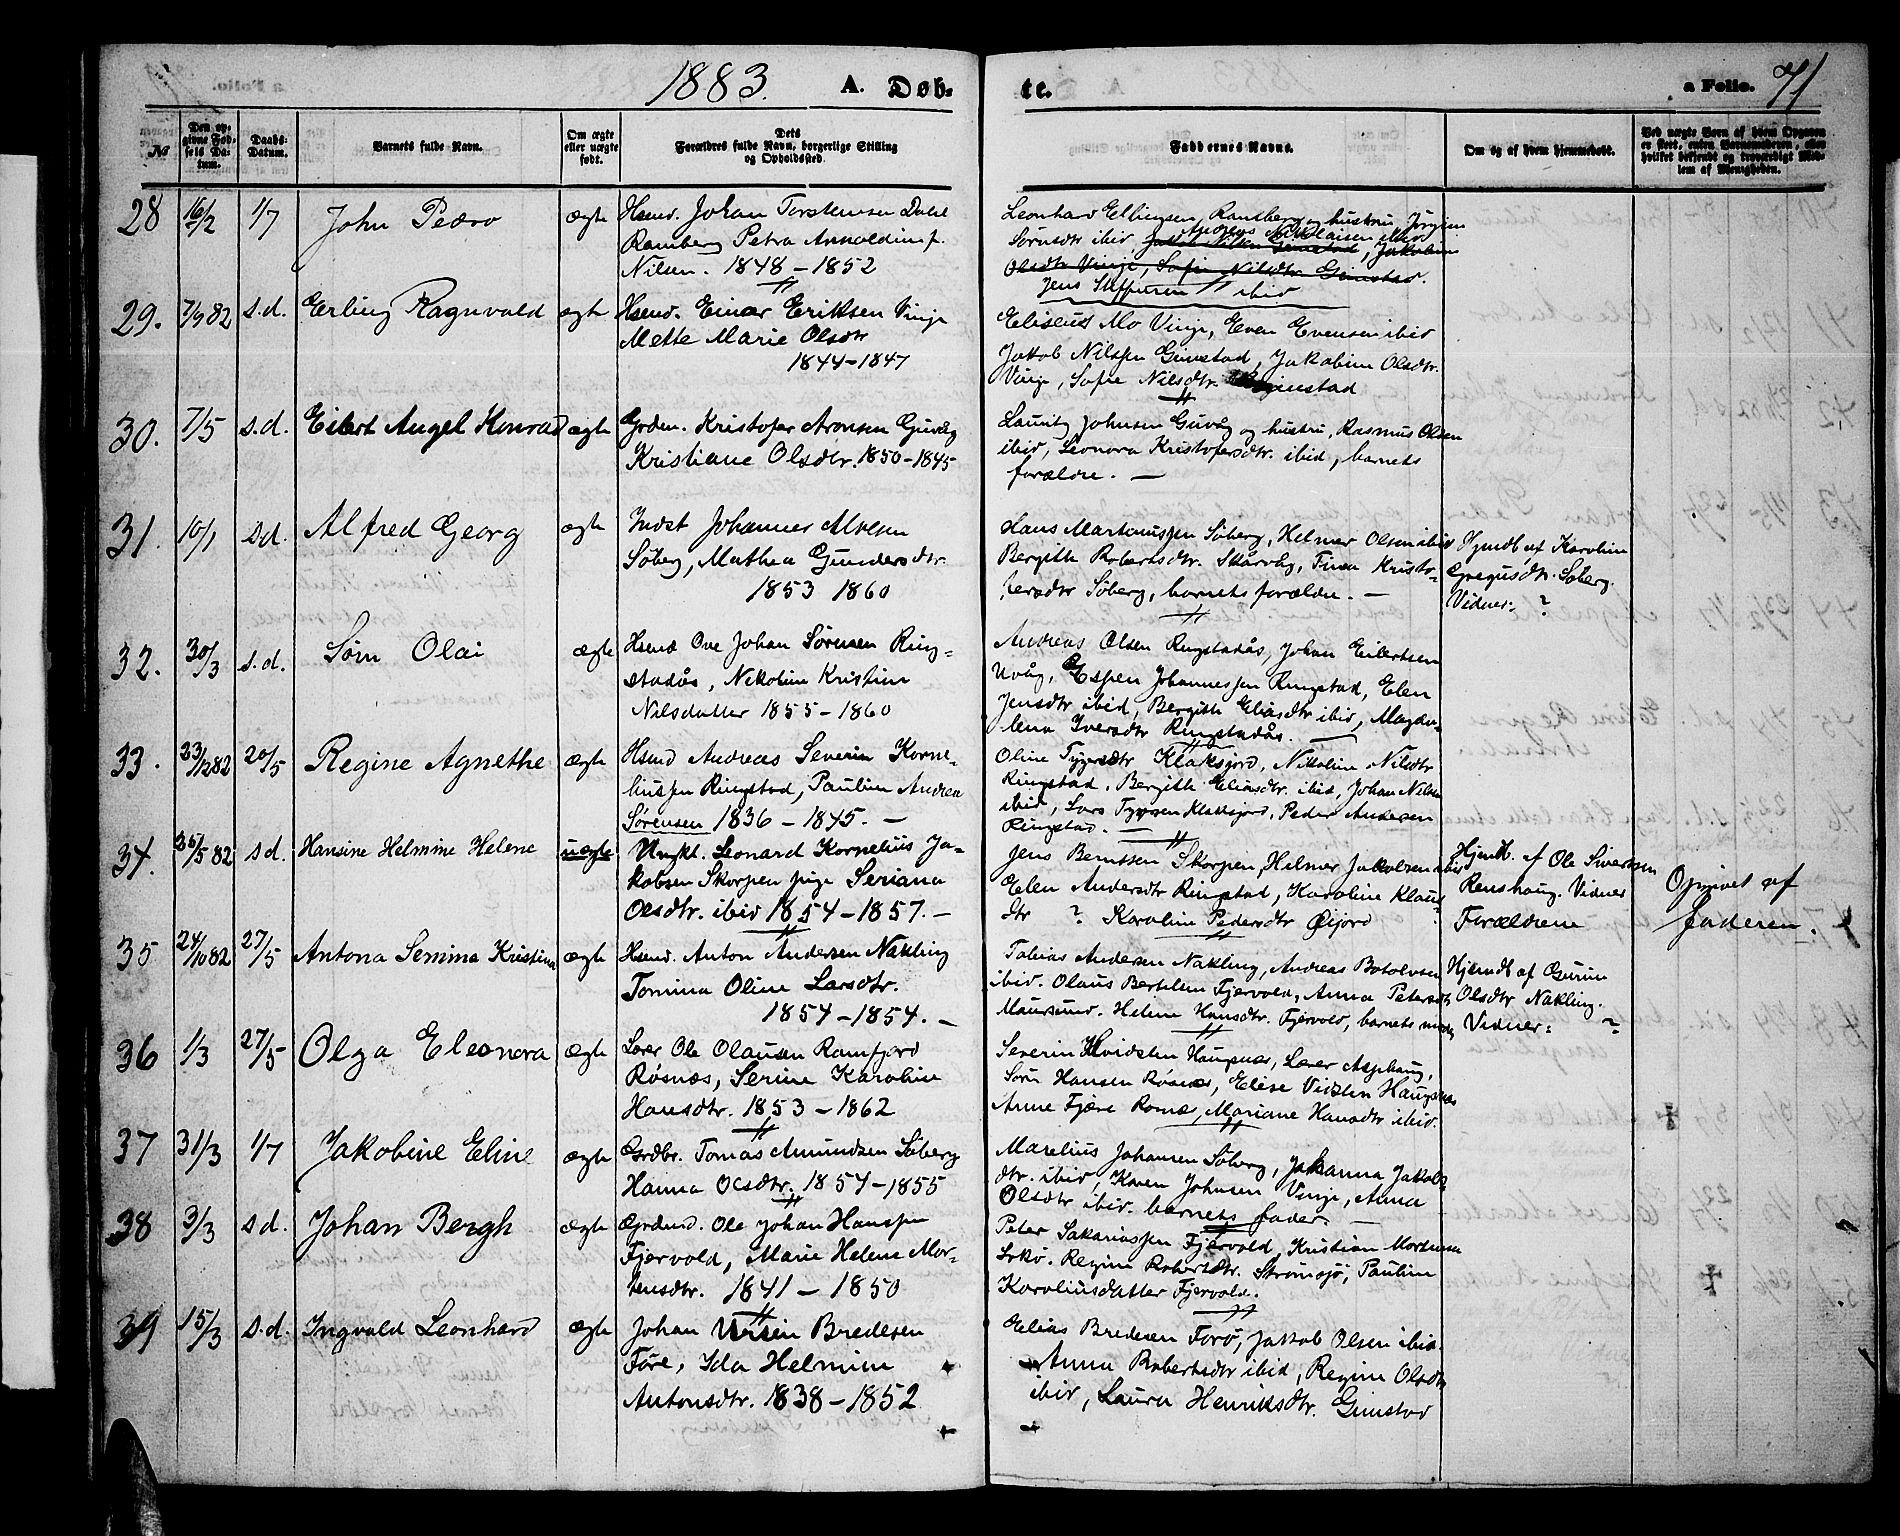 1883. A. Døb- te. a Folio. 71
№ Den opgivne Fødsels Datum. Daabs-Datum. Barnets fulde Navn. Om ægte eller uægte født. Dets Forældres fulde Navn, borgerlige Stilling og Opholdssted. Faddernes Navne. Om og af hvem hjemmedøbt. Ved uægte Børn af hvem Opgaven er skeet, enten Barnemoderen, eller hvilket bekjendt og troværdigt Medlem af Menigheden.
28 16/2 1/7 John Pedro ægte Hsmd. Johan Torstensen Dahl
Ramberg Petra Arnoldine f.
Nilsen. 1848 – 1852
Leonhard Ellingsen, Ramberg og hustru, Jørgine
Sørnsdtr ibid Andreas Nikolaisen ibid
Jakob Nilsen Grimstad, Jakobine
Olsdtr Vinje, Sofie Nilsdtr. Grimstad.
Jens Steffensen ibid
29. 7/9 82 s.d. Erling Ragnvald ægte Hsmd. Einar Eriksen Vinje
Mette Marie Olsdtr
1844–1847
Eliseus Mo Vinje, Even Evensen ibid
Jakob Nilssen Grimstad, Jakobine Olsdtr.
Vinje, Sofie Nilsdtr. Grimstad
30. 7/5 s.d. Eilert Angel Konrad ægte Grdm. Kristofer Aronsen Guvåg
Kristiane Olsdtr. 1850–1845
Lauritz Johnsen Guvåg og hustru, Rasmus Olsen
ibid, Leonora Kristofersdtr. ibid, barnets
forældre. —
31. 10/1 s.d. Alfred Georg ægte Indst Johannes
Søberg, Mathea Gundersdtr.
1853 1860
Hans Martinussen Søberg, Helmer Olsen ibid
Bergitte Robertsdtr. Skårvåg, Trina Kristo-
fersdtr Søberg, barnets forældre. —
Hjmdb. af Karoline
Gregusdtr. Søberg.
Vidner: ?
32. 30/3 s.d. Sørn Olai ægte Hsmd Ove Johan Sørensen Ring-
stadås, Nikoline Kristine
Nilsdatter 1855–1860
Andreas Olsen Ringstadås, Johan Eilertsen
Uvåg, Espen Johannessen Ringstad, Elen
Jensdtr ibid, Bergitte Eliasdtr ibid, Magda-
lena Iversdtr Ringstadås. —
33. 23/12 82 20/5 Regine Agnethe ægte Hsmd Andreas Severin Korne-
liussen Ringstad, Pauline Andrea
Sørensen 1836 – 1845. —
Oline Tygersdtr Klaksjord, Nikoline Nilsdtr
Ringstad, Bergitte Eliasdtr. ibid, Johan Nilsen
ibid, Lars Tygesen Klaksjord, Peder Andersen
Ringstad. —
34. 25/5 82 s.d. Hansine Helmine Helene uægte Ungkl. Leonard Kornelius Ja-
kobsen Skorpen pige Seriana
Olsdtr. ibid 1854–1857. —
Jens Berntsen Skorpen, Helmer Jakobsen ibid
Elen Andersdtr Ringstad, Karoline Klaus-
dtr ? Karoline Pedersdtr Øijord
Hjemd. af Ole Sivertsen
Renshaug. Vidner
Forældrene
Opgivet af
faderen.
35 24/10 82 27/5 Antona Semina Kristina ægte Hsmd. Anton Andersen Nakling
Tomina Oline Larsdtr.
1854–1854. —
Tobias Andersen Nakling, Andreas Botolvsen
ibid. Olaus Bertelsen Fjervold, Anna Petersdtr
Maursund. Helene Hansdtr. Fjervold, barnets moder
Hjemdt af Gurine
Olsdtr Nakling.
Vidner: ?
36 1/3 27/5 Olga Eleonora ægte Lærer Ole Olausen Ramfjord
Røsnæs, Serine Karoline
Hansdtr. 1853–1862
Severin Hvidsten Haugsnæs, Lærer Asphaug,
Sørn Hansen Røsnæs, Elise Vidsten Haugsnæs
Anne Fjære Rosnæs, Mariane Hansdtr ibid.
37 31/3 1/7 Jakobine Eline ægte Grdbr. Tomas Amundsen Søberg
Hanna Olsdtr. 1854–1855
Marelius Johansen Søberg, Johanna Jakobs-
dtr. ibid, Karen Johnsen Vinje, Anna
Olsdtr ibid. barnets fader. —
38 3/3 s.d. Johan Bergh ægte Grdmd. Ole Johan Hanssen
Fjervold, Marie Helene Mor-
tensdtr. 1841–1850
Peter Sakariassen Fjervold, Kristian Mortensen
Regine Robertsdtr. Strømsjø, Pauline
Karoliusdatter Fjervold.
39 15/3 s.d. Ingvald Leonhard ægte Johan Ursin Bredesen
Føre, Ida Helmine
Antonsdtr. 1838–1852
Elias Bredesen Forø, Jakob Olsen ibid.
Anna Robertsdtr ibid, Regine Olsdtr
ibid, Laura Henriksdtr. Grimstad